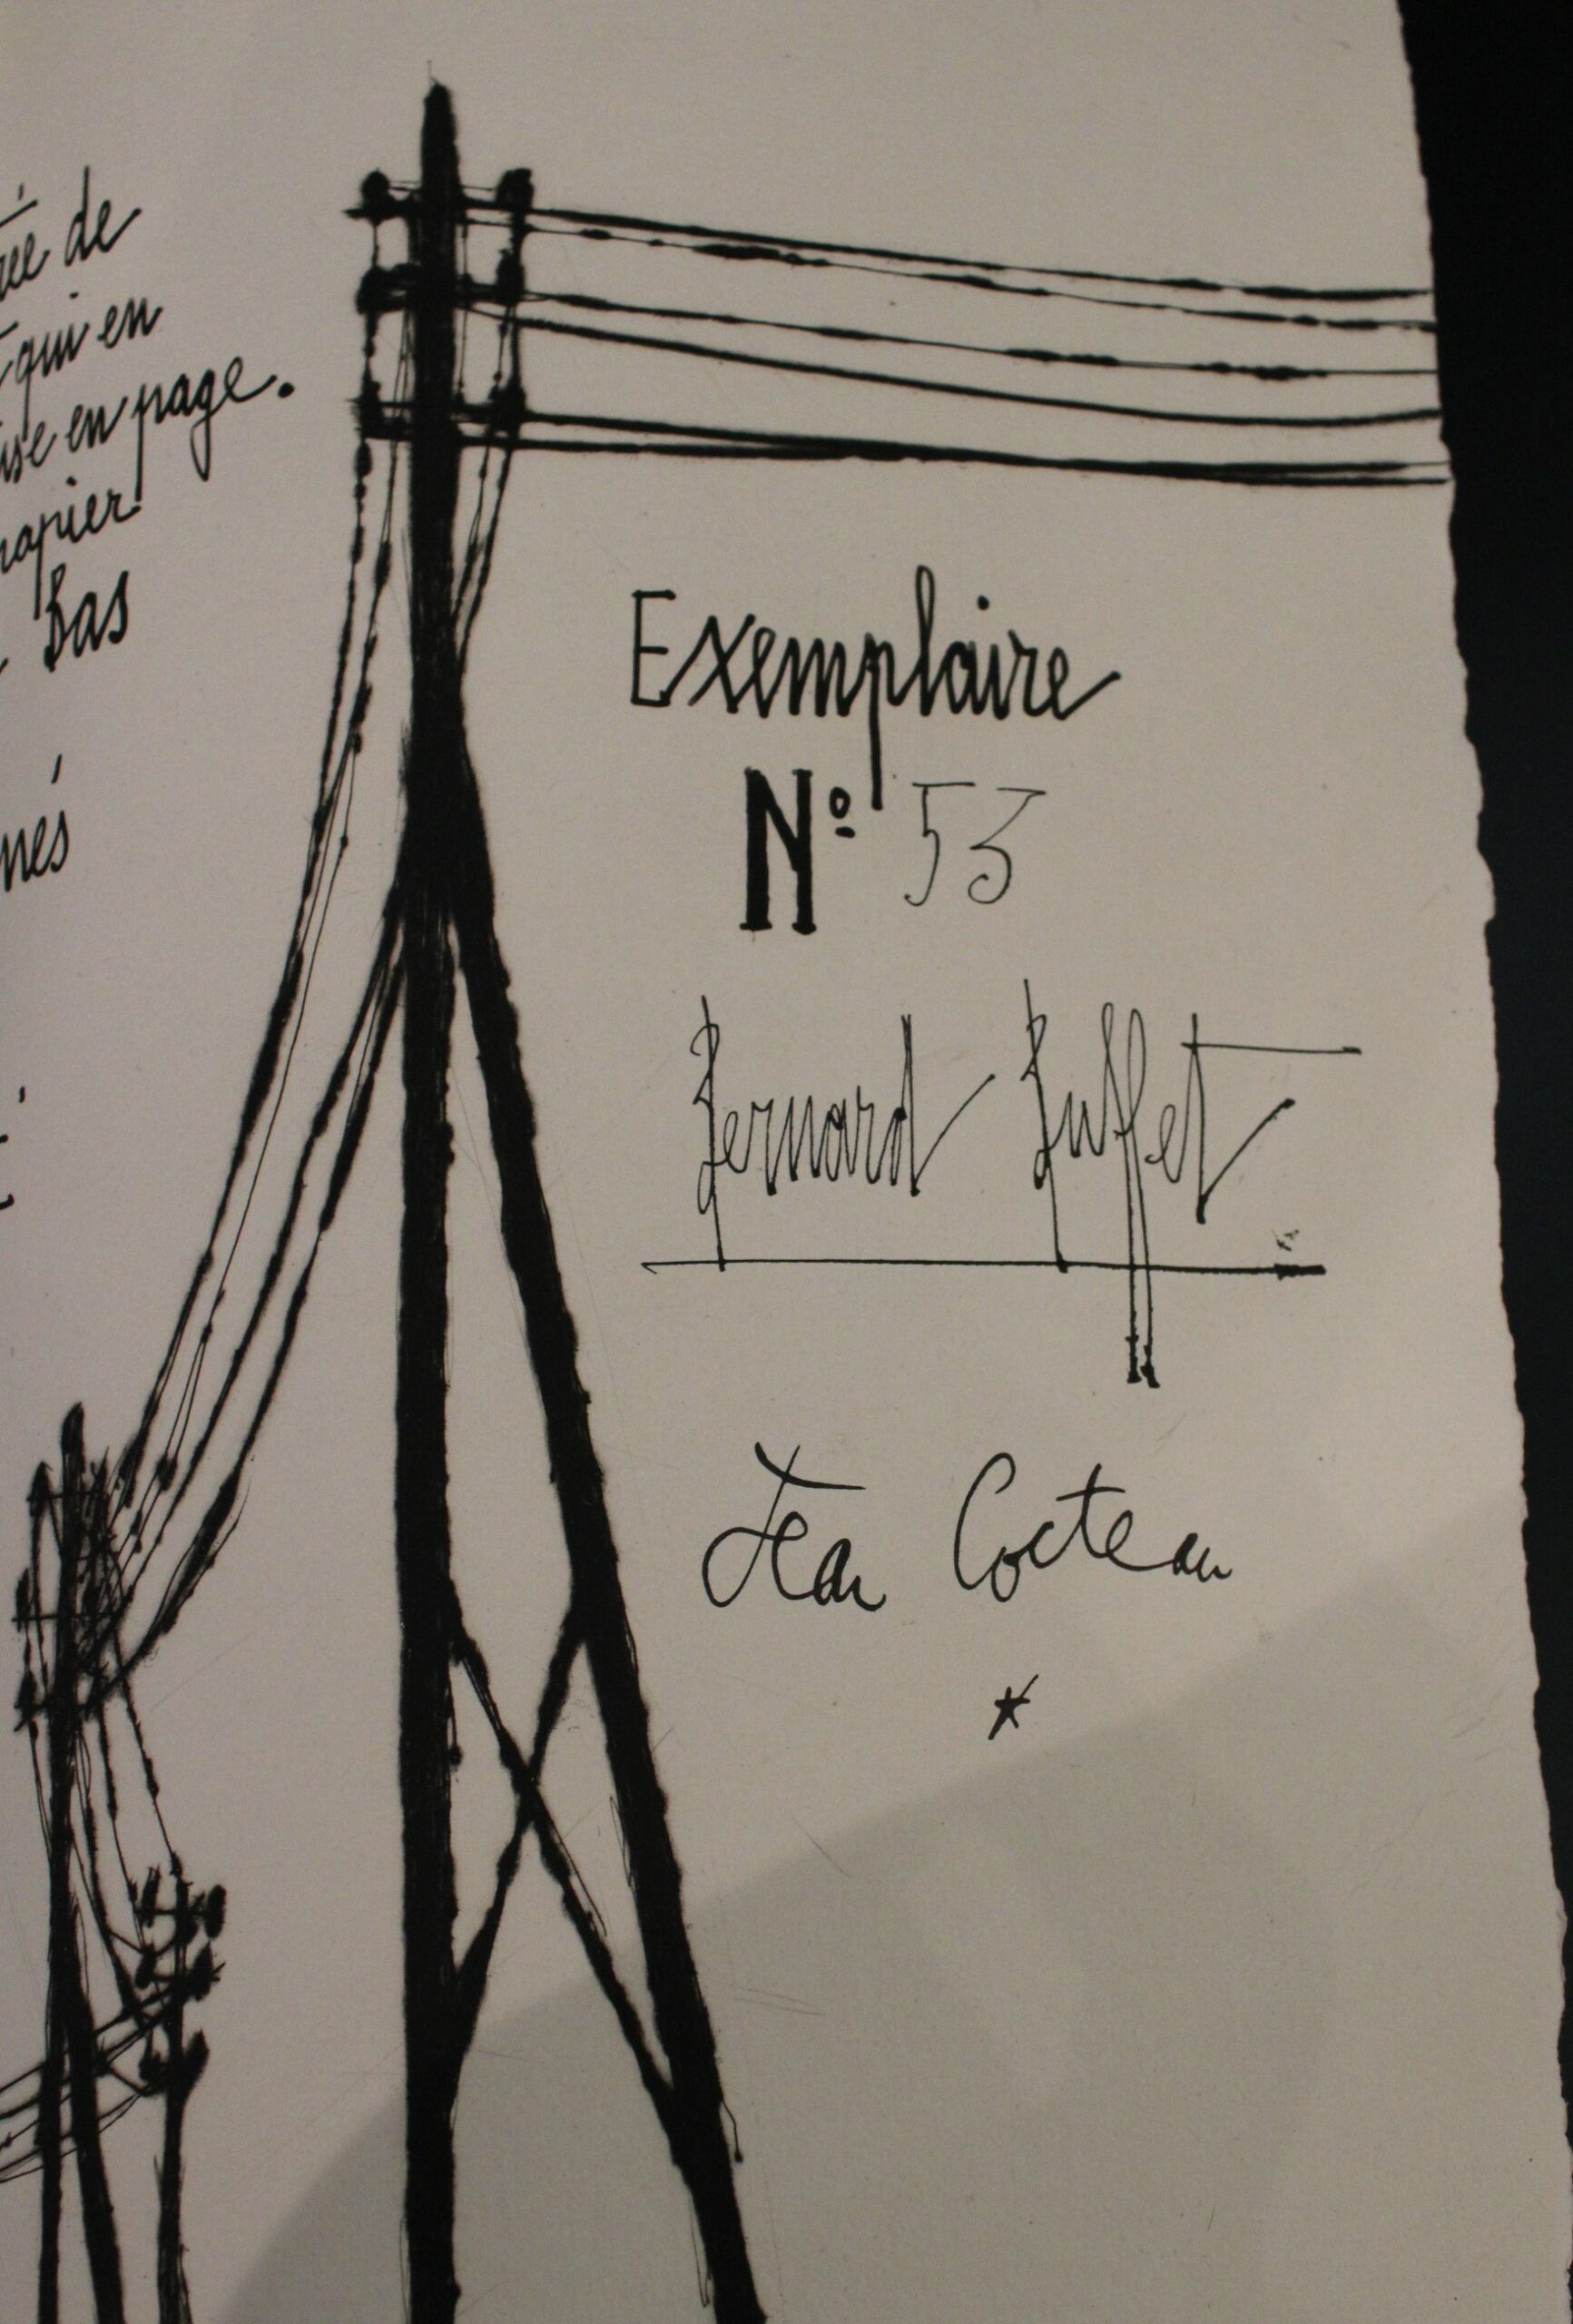 de
qui en
en page.
papier
Bas
Exemplaire
Nº 53
Bernard Buffet
Jean Cocteau
*